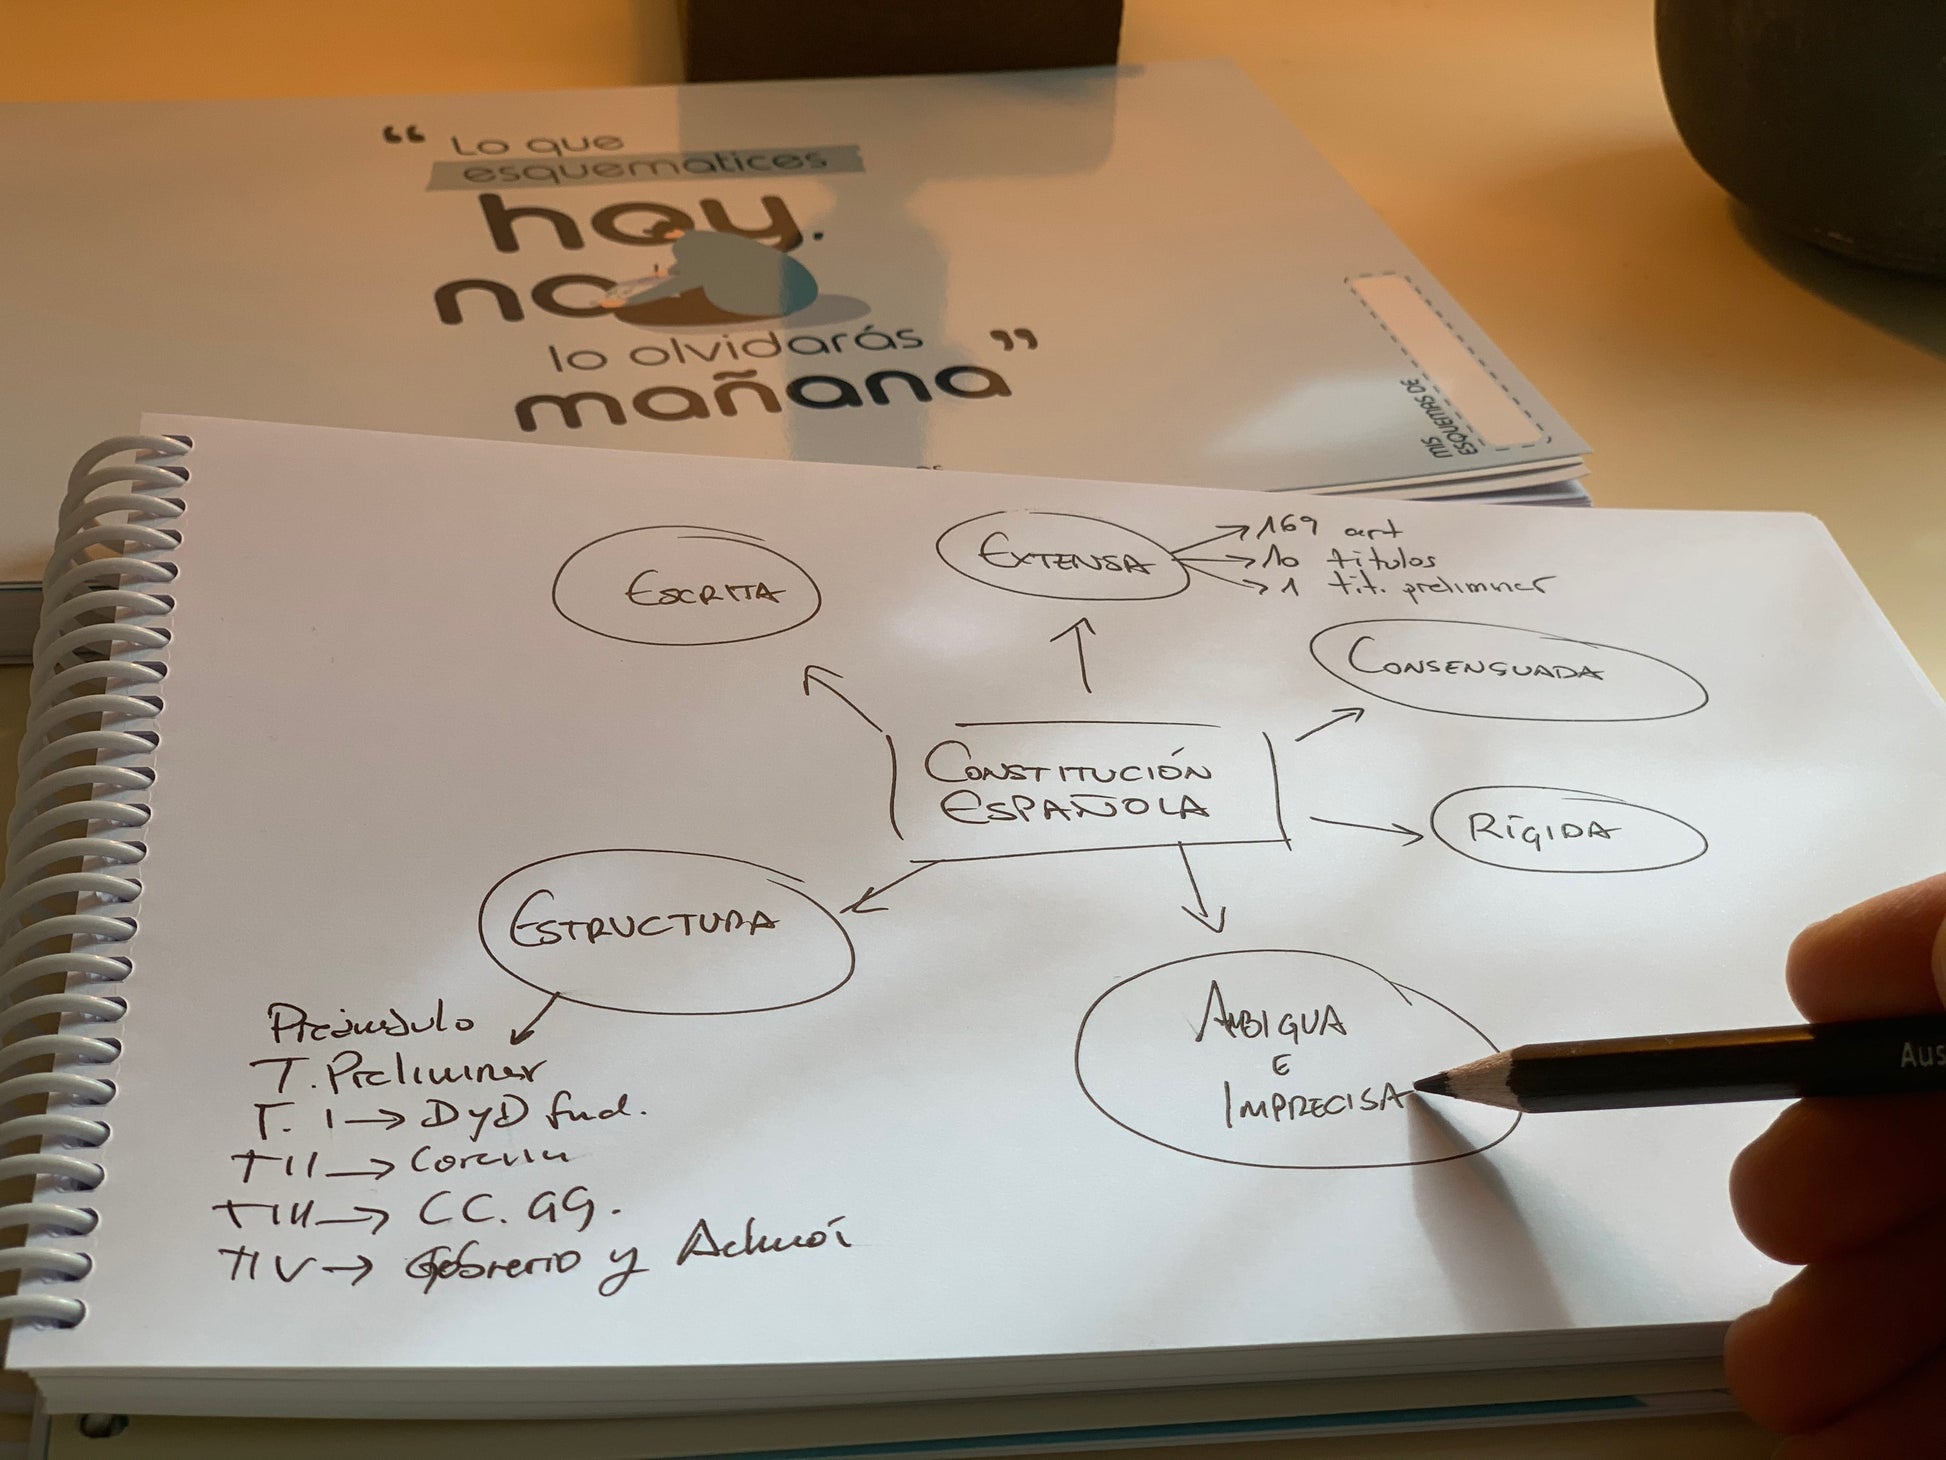 “ Lo que
esquematices
hoy,
no
lo olvidarás
mañana ”
MIS
ESQUEMAS DE
ESCRITA
EXTENSA
169 art
10 títulos
1 tit. preliminar
CONSENSUADA
CONSTITUCIÓN
ESPAÑOLA
RÍGIDA
ESTRUCTURA
AMBIGUA
E
IMPRECISA
Preámbulo
T. Preliminar
T. I → DyD fund.
TII → Corona
TIII → CC. GG.
TIV → Gobierno y
Aus